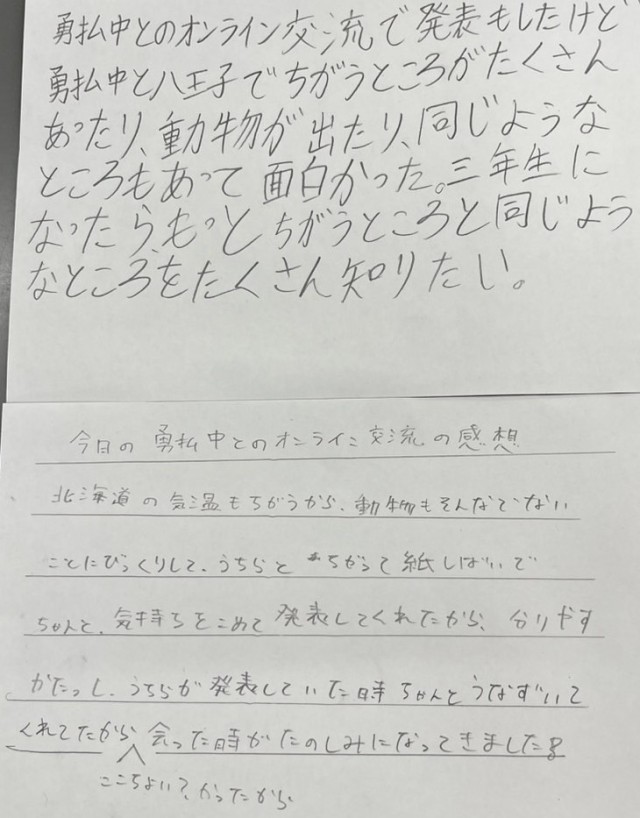 勇払中とのオンライン交流で発表もしたけど
勇払中と八王子でちがうところがたくさん
あったり、動物が出たり、同じような
ところもあって面白かった。三年生に
なったら、もっとちがうところと同じよう
なところをたくさん知りたい。
今日の勇払中とのオンライン交流の感想
北海道の気温もちがうから、動物もそんなでない
ことにびっくりして、うちらとちがって紙しばいで
ちゃんと、気持ちをこめて発表してくれたから、分りやす
かたっし、うちらが発表していた時ちゃんとうなずいて
くれてたから会った時がたのしみになってきました
ここちよい?かったから